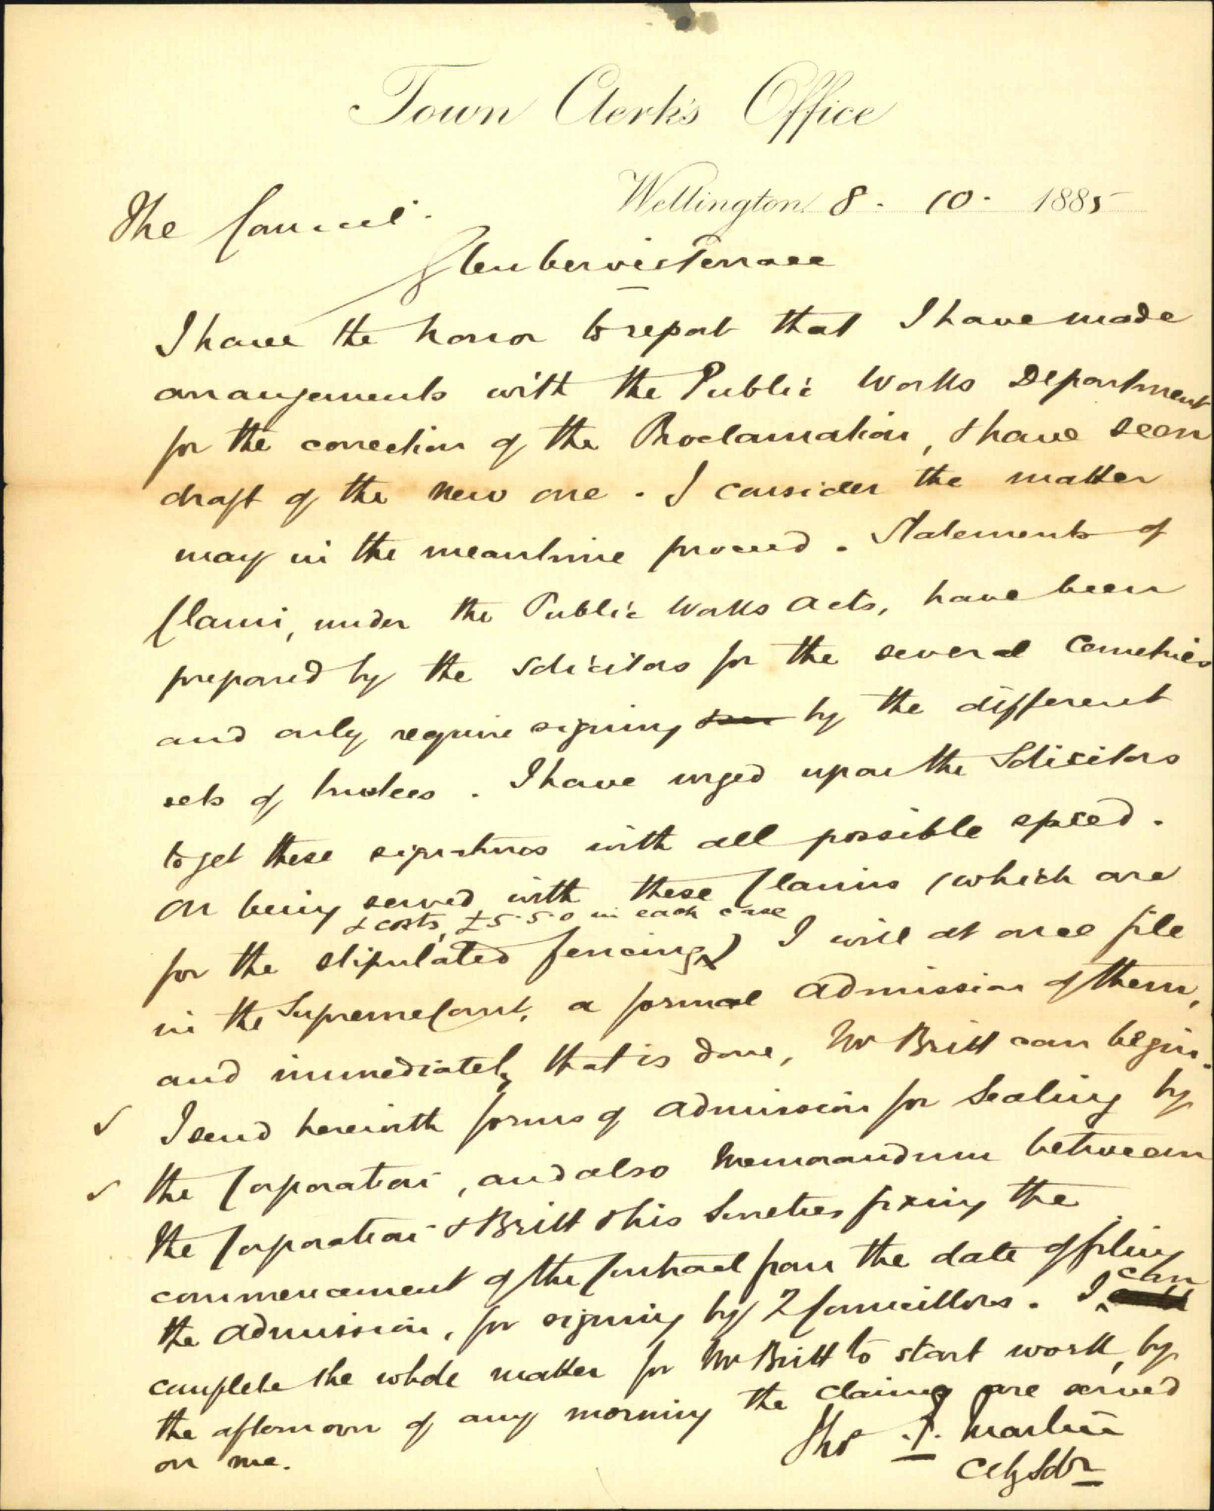 Town Clerk's Office
Wellington 8 . 10 . 1885
The Council.
Glenbervie Terrace
I have the honor to report that I have made
arrangements with the Public Works Department
for the correction of the Proclamation, & have seen
draft of the new one . I consider the matter
may in the meantime proceed . Statements of
Claim, under the Public Works Acts, have been
prepared by the Solicitors for the several Cemeteries
and only require signing by the different
sets of trustees . I have urged upon the Solicitors
to get these signatures with all possible speed .
On being served with these Claims (which are
& costs, £5.5.0 in each case
for the stipulated fencing) I will at once file
in the Supreme Court, a formal admission of them,
and immediately that is done, Mr Britt can begin.
I send herewith forms of admission for Sealing by
the Corporation, and also Memorandum between
the Corporation & Britt & his Sureties fixing the
commencement of the Contract from the date of filing
can
the admission, for signing by 2 Councillors . I
complete the whole matter for Mr Britt to start work, by
the afternoon of any morning the claims are served
on me.
Thos . F. Martin
City Solr